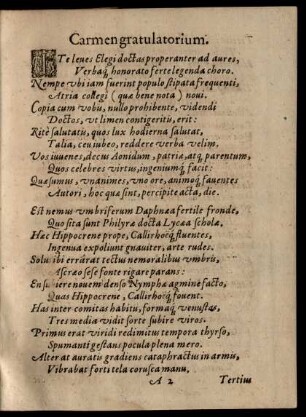 Carmen gratulatorium.
ITe leves Elegi doctas properanter ad aures,
Verbaq́; honorato ferte legenda choro.
Nempe ubi iam fuerint populo stipata frequenti,
Atria collegi (quæ bene nota) novi.
Copia cum vobis, nullo prohibente, videndi
Doctos, ut limen contigeritis, erit:
Ritè salutatis, quos lux hodierna salutat,
Talia, ceu iubeo, reddere verba velim.
Vos iuvenes, decus Aonidum, patriæ, atq́; parentum,
Quos celebres virtus, ingeniumq́; facit:
Quæsumus, unanimes, uno ore, animoq́; faventes
Autori, hoc quæ sint, percipite acta, die.
Est nemus umbriferum Daphnæa fertile fronde,
Quo sita sunt Philyræ docta Lycæa scholæ.
Hac Hippocrene prope, Callirhocq́; fluentes,
Ingenua expoliunt gnaviter, arte rudes.
Solus ibi errârat tectus nemoralibus umbris,
Ascræo sese fonte rigare parans:
En subiere novem denso Nymphæ agmine facto,
Quas Hippocrene, Callirhocq́; fovent.
Has inter comitas habitu, formaq́; venustas,
Tres media vidit forte subire viros.
Primus erat viridi redimitus tempora thyrso,
Spumanti gestans pocula plena mero.
Alter at auratis gradiens cataphractus in armis,
Vibrabat forti tela corusca manu.
A 2
Tertius